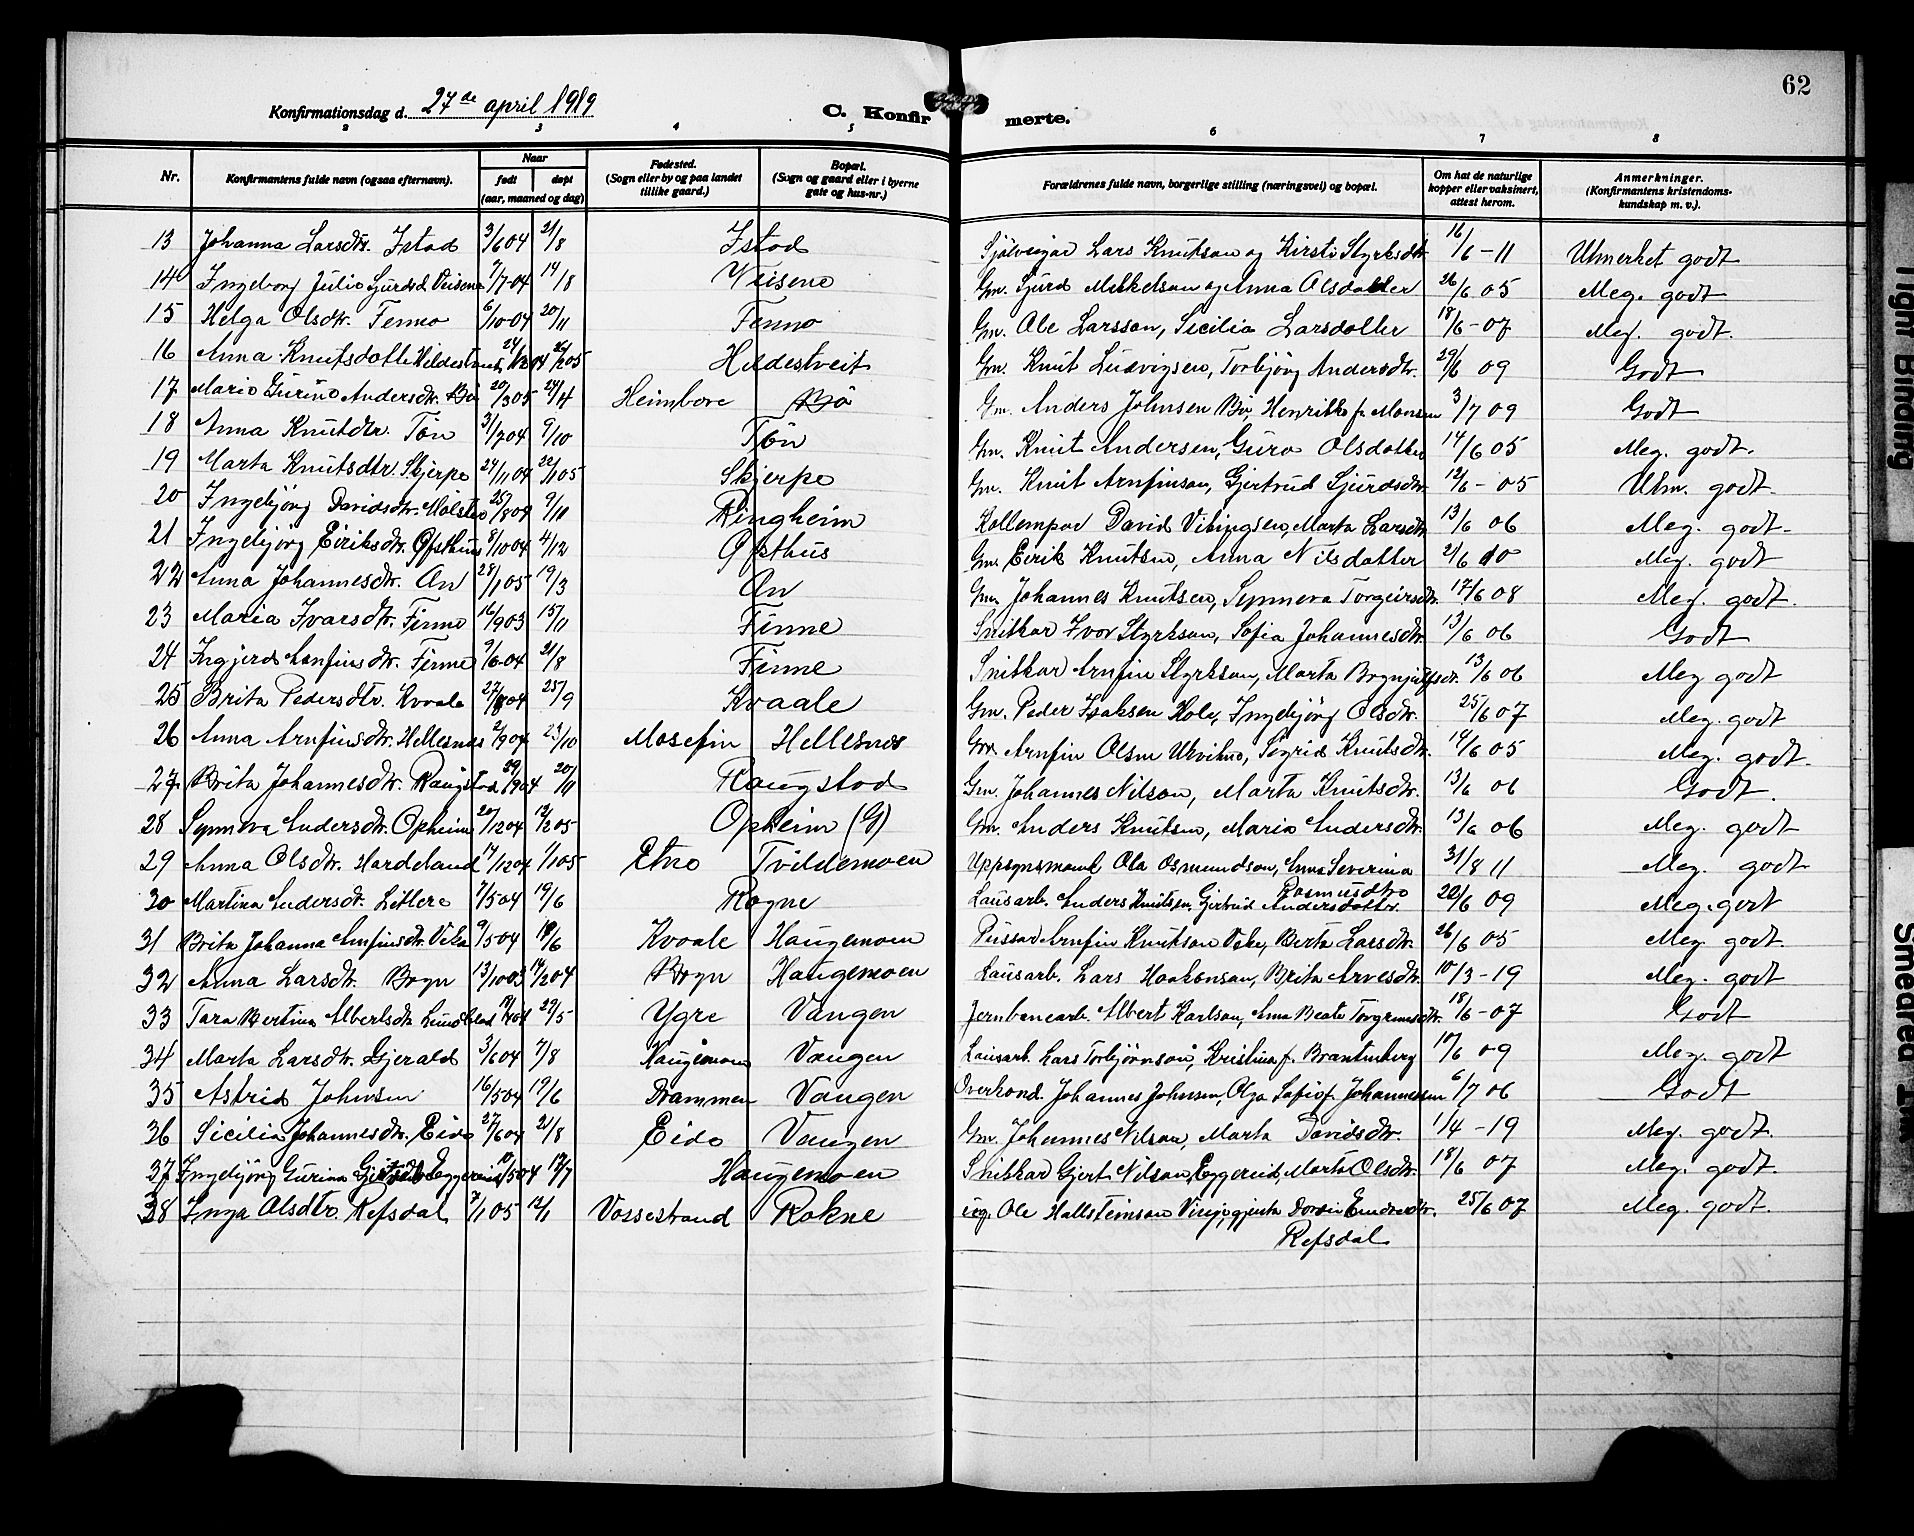 62
Konfirmationsdag d. 27de april 1919
C. Konfirmerte.
2 3 4 5 6 7 8
Nr. Konfirmantens fulde navn (ogsaa efternavn). Naar født døpt (aar, maaned og dag) Fødested. (Sogn eller by og paa landet tillike gaard.) Bopæl. (Sogn og gaard eller i byerne gate og hus-nr.) Forældrenes fulde navn, borgerlige stilling (næringsvei) og bopæl. Om hat de naturlige kopper eller vaksinert, attest herom. Anmerkninger. (Konfirmantens kristendomskundskap m. v.).
13 Johanna Larsdtr. Istad 3/6 04 21/8 Istad Sjølveigar Lars Knutson og Kirsti Styrksdtr 16/6-11 Utmerket godt
14 Ingeborg Julie Sjursd Veisene 7/7-04 14/8 Veisene Gm. Sjurd Mikkelson og Anna Olsdatter 26/6 05 Meg. godt
15 Helga Olsdtr. Fenno 6/10-04 20/11 Fenno Gm. Ole Larsson, Sicilia Larsdotter 18/6-07 Meg. godt.
16 Anna Knutsdotter Hildestveit 24/12 04 26/2 05 Hildestveit Gm. Knut Ludvigsen, Torbjörg Andersdtr. 29/6 09 Godt
17 Marie Gurine Andersdtr. Bö 20/3 05 24/4 Heimbore Bö Gm. Anders Johnsen Bö, Henrikke f. Monsen 3/7 09 Godt
18 Anna Knutdtr. Tön 31/7 04 9/10 Tön Gm. Knut Andersen, Guro Olsdotter 14/6 05 Meg. godt.
19 Marta Knutsdtr. Skjerpe 27/11 04 22/1 05 Skjerpe Gm. Knut Arnfinson, Gjertrud Sjurdsdtr 12/6-05 Utm. godt.
20 Ingebjörg Davidsdtr. Mölster 25/8 04 9/11 Ringheim David Vikingsen, Marta Larsdtr 13/6 06 Meg. godt.
21 Ingebjörg Eiriksdtr. Öfsthus 8/10 04 4/12 Öfsthus Gm. Eirik Knutsen, Anna Nilsdotter 21/6 10 Meg. godt
22 Anna Johannesdtr. An 28/1 05 19/3 An Gm. Johannes Knutsen, Synneva Torgeirsdtr. 17/6 08 Meg. godt.
23 Maria Ivarsdtr. Finne 16/9 03 15/11 Finne Snikkar Ivar Styrkson, Sofia Johannesdtr. 13/6 06 Godt
24 Ingjerd Arnfinsdtr. Finne 9/6-04 21/8 Finne Snikkar Arnfin Styrkson, Marta Brynjulfsdtr. 13/6 06 Meg godt
25 Brita Pedersdtr. Kvaale 27/8 04 25/9 Kvaale Gm. Peder Isaksen Kole, Ingebjörg Olsdtr. 25/6 07 Meg. godt
26 Anna Arnfinsdtr. Hellesnes 2/9 04 23/10 Mosefin Hellesnes Gm. Arnfin Olsen Urvikne, Sigrid Knutsdtr. 14/6 05 Meg. godt.
27 Brita Johannesdtr. Raugstad 29/9 04 20/11 Raugstad Gm. Johannes Nilson, Marta Knutsdtr. 13/6 06 Godt.
28 Synneva Andersdtr. Opheim 20/12 04 12/2 05 Opheim (G) Gm. Anders Knutsen, Maria Andersdtr. 13/6 06 Meg. godt
29 Anna Olsdtr. Hardeland 17/12 04 1/1 05 Etne Tvildemoen Uppsynsmand Ola Osmundson, Anna Severina Rasmusdtr. 31/8 11 Meg. godt
30 Martina Andersdtr. Litlere 7/5 04 19/6 Rogne Lausarb. Anders Knutsen. Gjertrud Andersdotter. 22/6 09 Meg. gott
31 Brita Johanna Arnfinsdtr. Veka 9/5 04 19/6 Kvaale Haugemoen Pussar Arnfin Knutson Veke, Berta Larsdtr. 26/6 05 Meg. godt
32 Anna Larsdtr. Bryn 13/10 03 14/2 04 Bryn Haugemoen Lausarb. Lars Haakonson, Brita Arvesdtr. 10/3-19 Meg. godt
33 Tara Bertina Albertsdtr Lundblad 29/5 Ygre Vangen Jernbanearb. Albert Karlson, Anna Beate Torgrimsdtr. 18/6-07 Godt
34 Marta Larsdtr. Gjerald 3/6 04 7/8 Haugemoen Vangen Lausarb. Lars Torbjönson, Kristina f. Brantenberg 10/6 09 Meg. godt
35 Astrid Johnsen 16/5 04 19/6 Drammen Vangen Overkond. Johannes Johnsen, Olga Sofie f. Johannesen 6/7 06 Godt
36 Sicilia Johannesdtr. Eide 27/6 04 21/8 Eide Vangen Gm. Johannes Nilson, Marta Davidsdtr. 1/4-19 Meg. godt.
37 Ingebjörg Gurina Gjertsdtr Eggereid 19/5 04 17/7 Haugemoen Snikkar Gjert Nilson Eggereid, Marta Olsdtr. 18/6 07 Meg. godt
38 Inga Olsdtr. Refsdal 7/1 05 12/1 Vossestrand Rokne Ole Hallsteinson Vinje, gjenta Dordei Endresdtr. Refsdal 25/6 07 Meg. godt.
Tight Binding
Smeared Ink